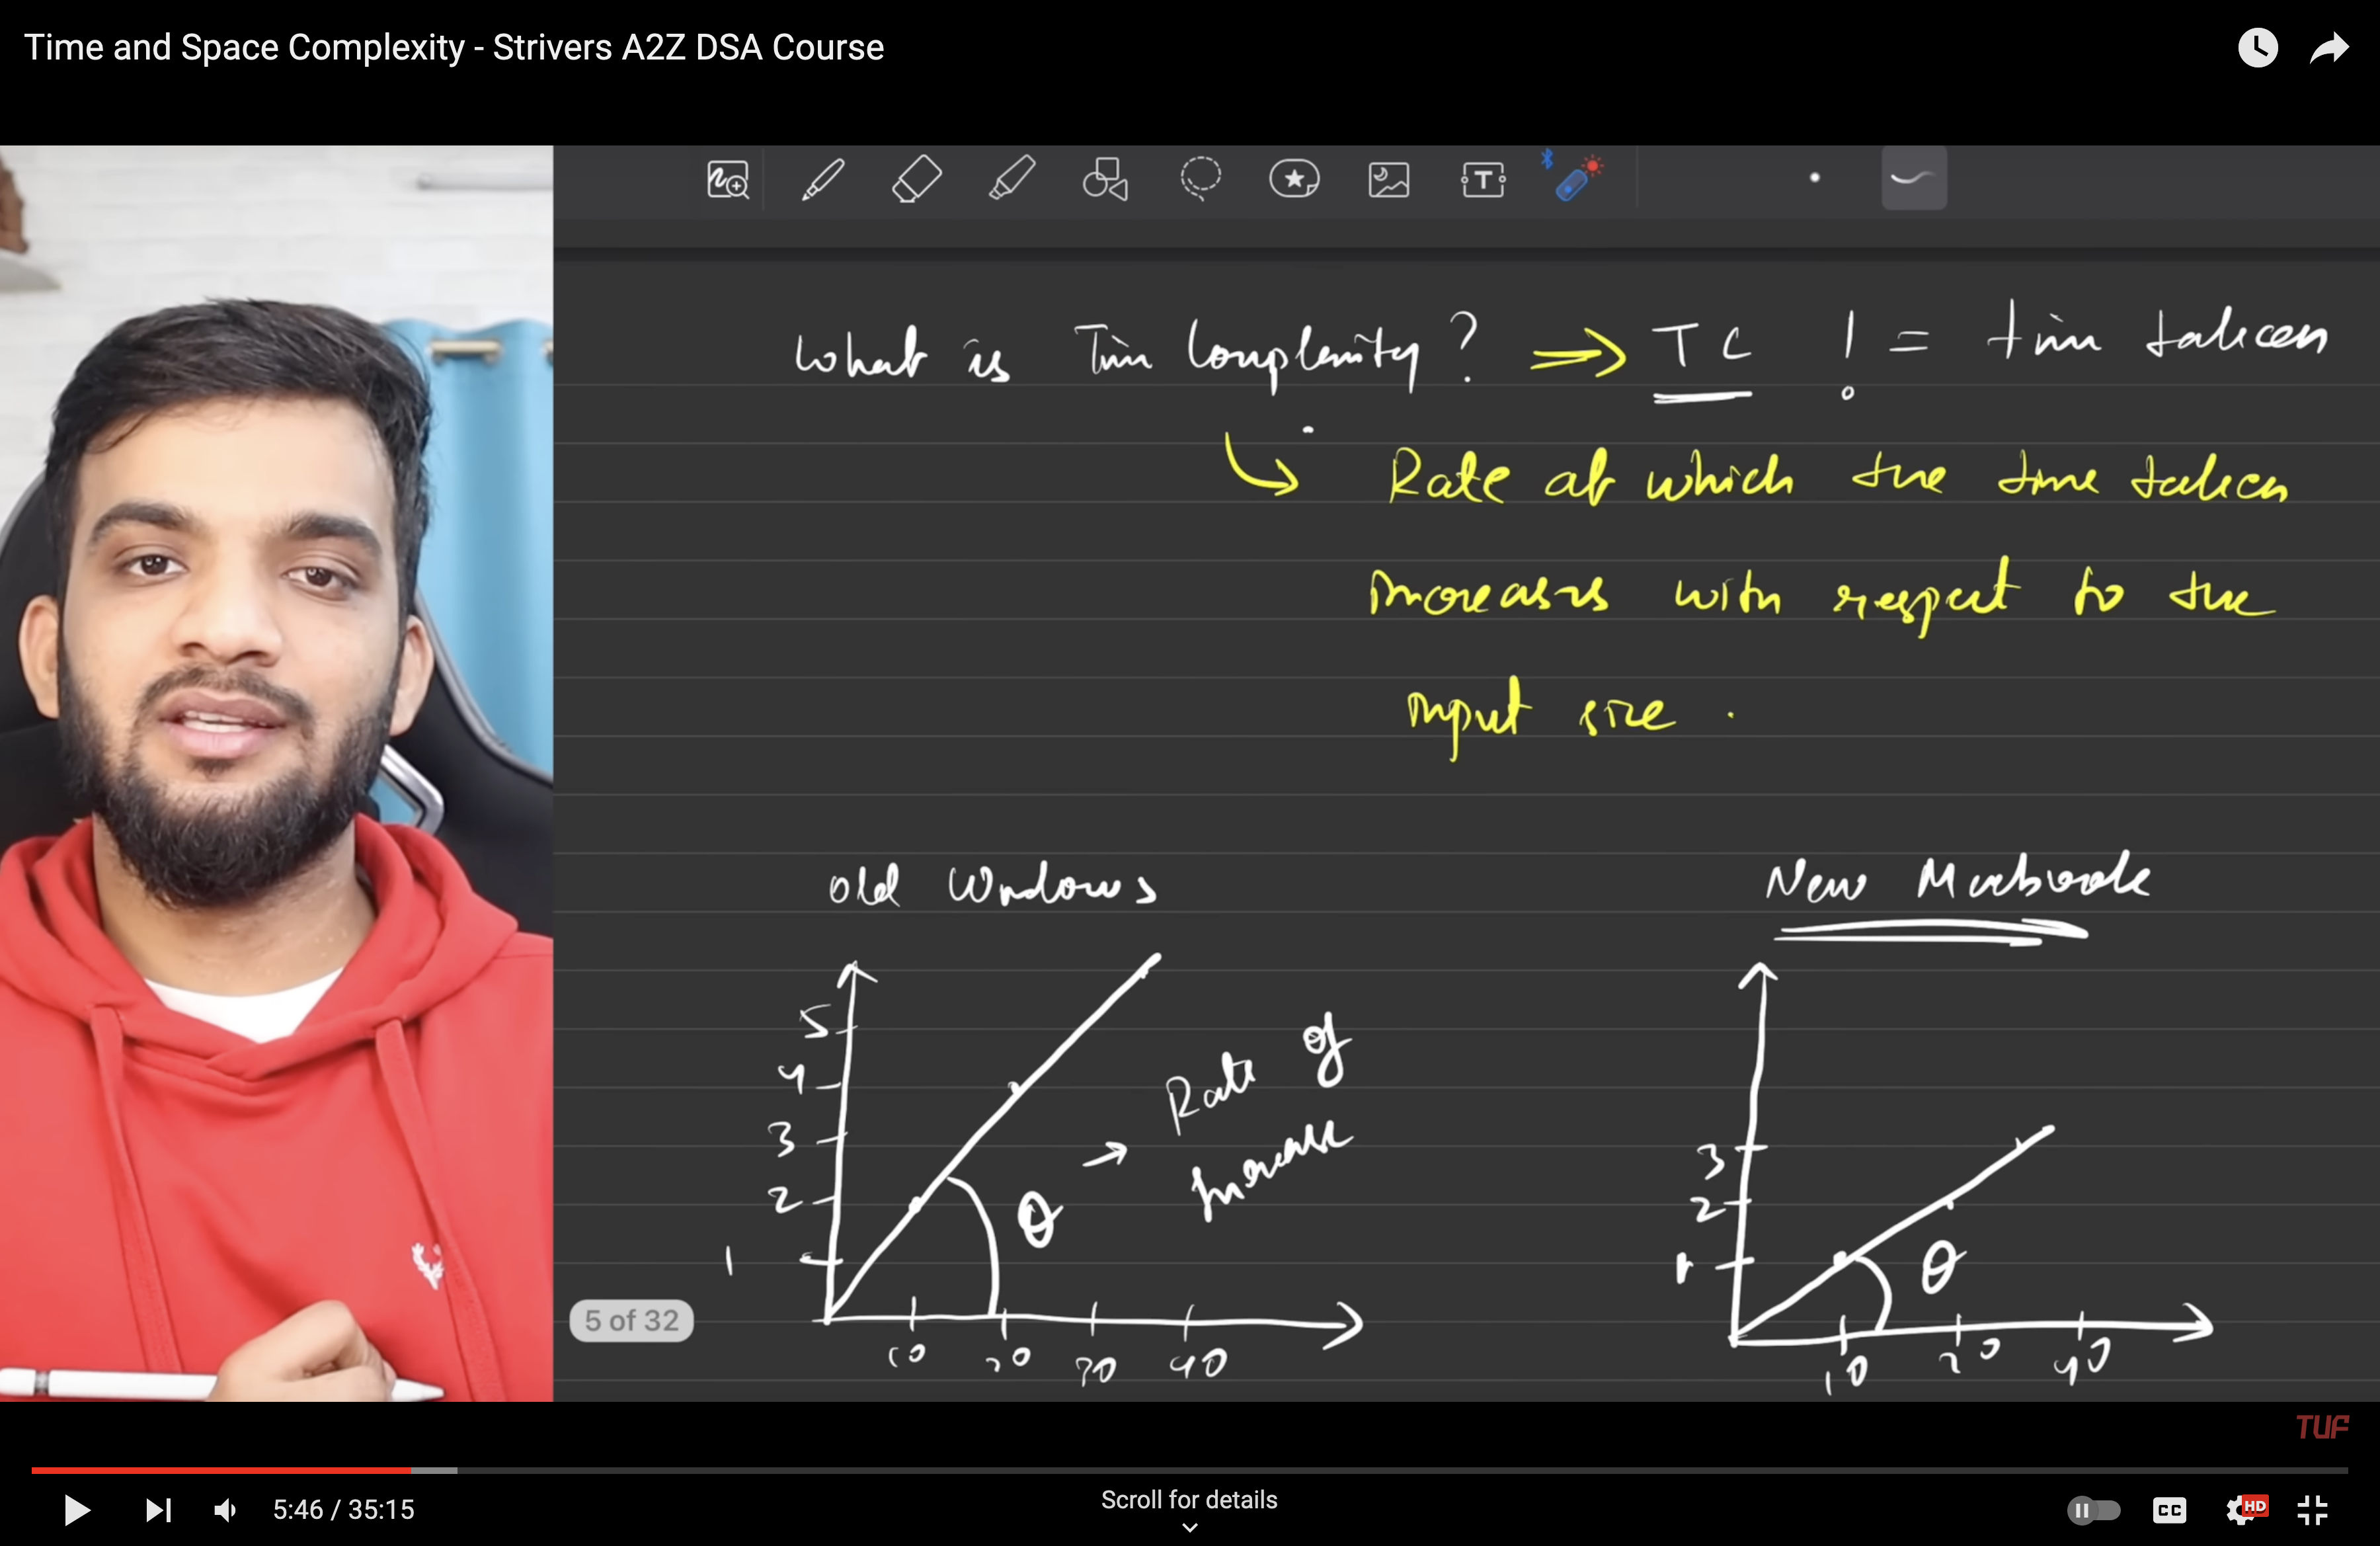 Time and Space Complexity - Strivers A2Z DSA Course
What is Time Complexity? ⇒ TC != time taken
Rate at which the time taken
increases with respect to the
input size.
Old Windows
New Macbook
5
4
3
2
1
10 20 30 40
θ → Rate of
increase
3
2
1
10 20 40
θ
5 of 32
TUF
5:46 / 35:15
Scroll for details
CC
HD